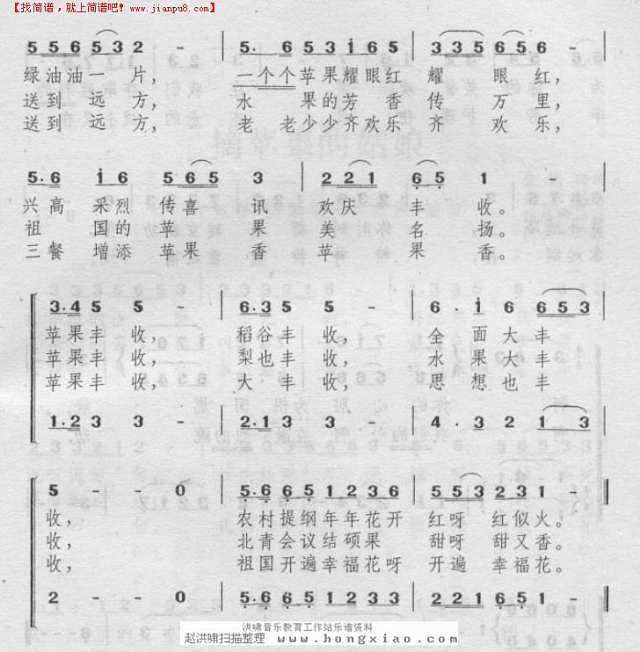 【找简谱,就上简谱吧! www.jianpu8.com】
5 5 6 5 3 2 - | 5· 6 5 3 i 6 5 | 3 3 5 6 5 6 -
绿油油一片, 一个个苹果耀眼红 耀 眼红,
送到 远方, 水 果的芳 香传 万里,
送到 远方, 老 老少少齐欢乐 齐 欢乐,
5· 6 i 6 | 5 6 5 3 | 2 2 1 6 5 1 -
兴高 采烈 传喜 讯 欢庆 丰 收。
祖 国的 苹 果 美 名 扬。
三餐 增添 苹果 香 苹 果 香。
3·4 5 5 - | 6·3 5 5 - | 6· i 6 6 5 3
苹果丰 收, 稻谷丰 收, 全 面大丰
苹果丰 收, 梨也丰 收, 水 果大丰
苹果丰 收, 大 丰 收, 思 想也丰
1·2 3 3 - | 2·1 3 3 - | 4· 3 2 1 3
5 - - 0 | 5·6 6 5 1 2 3 6 | 5 5 3 2 3 1 -
收, 农村提纲年年花开 红呀 红似火。
收, 北青会议结硕果 甜呀 甜又香。
收, 祖国开遍幸福花呀 开遍 幸福花。
2 - - 0 | 5·6 6 5 1 2 3 6 | 2 2 1 6 5 1 -
洪啸音乐教育工作站乐谱资料
赵洪啸扫描整理 www.hongxiao.com